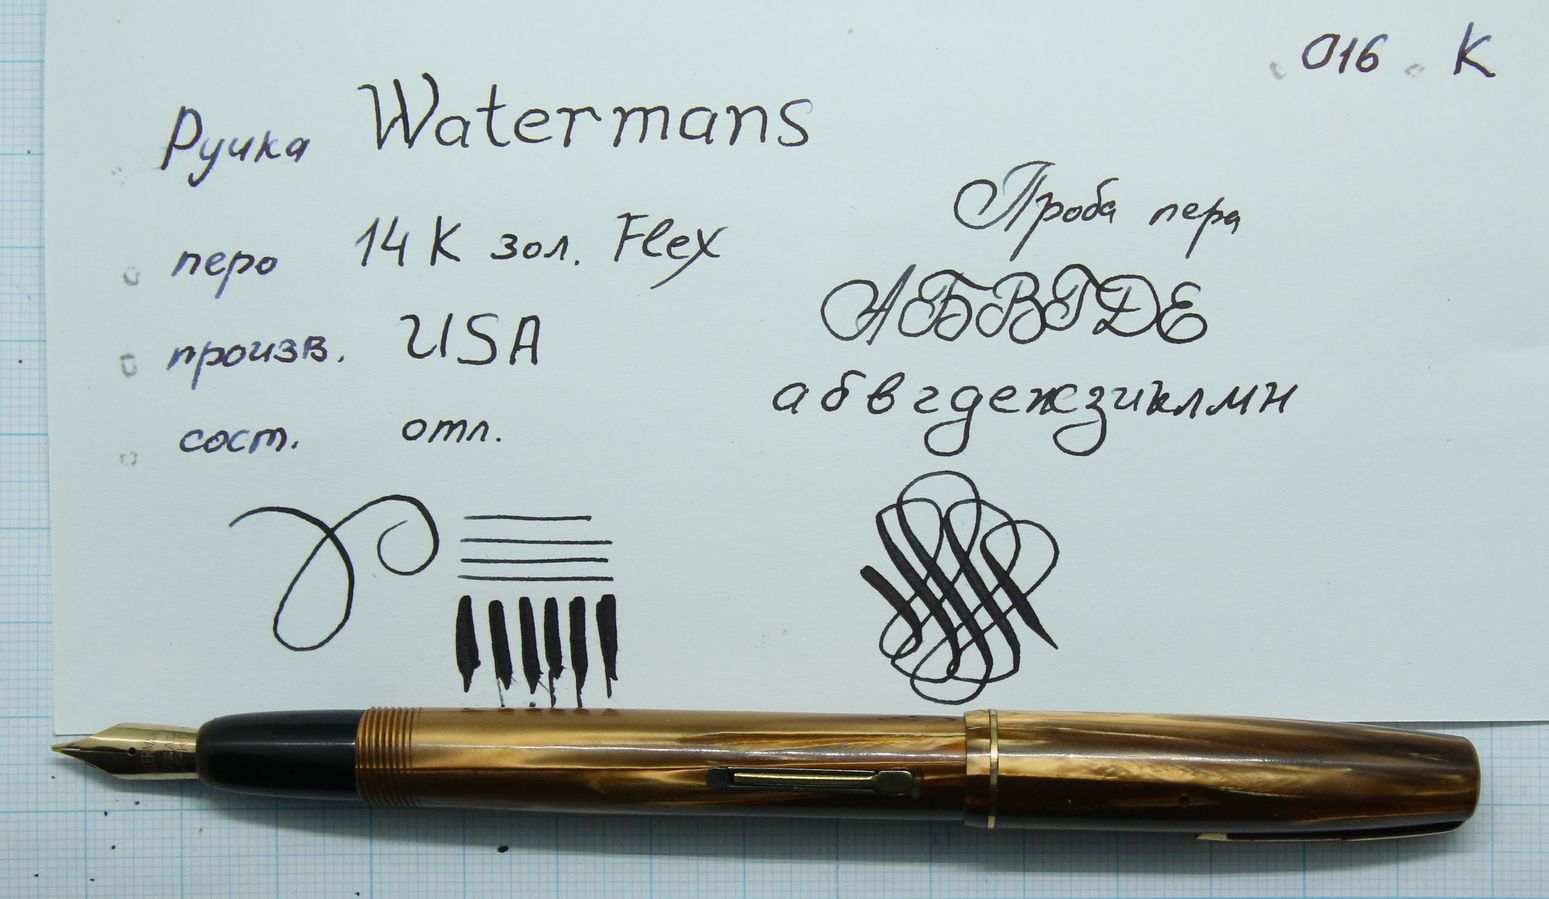 016 K
Ручка Watermans
перо 14 K зол. Flex
произв. USA
сост. отл.
Проба пера
АБВГДЕ
абвгдежзиклмн